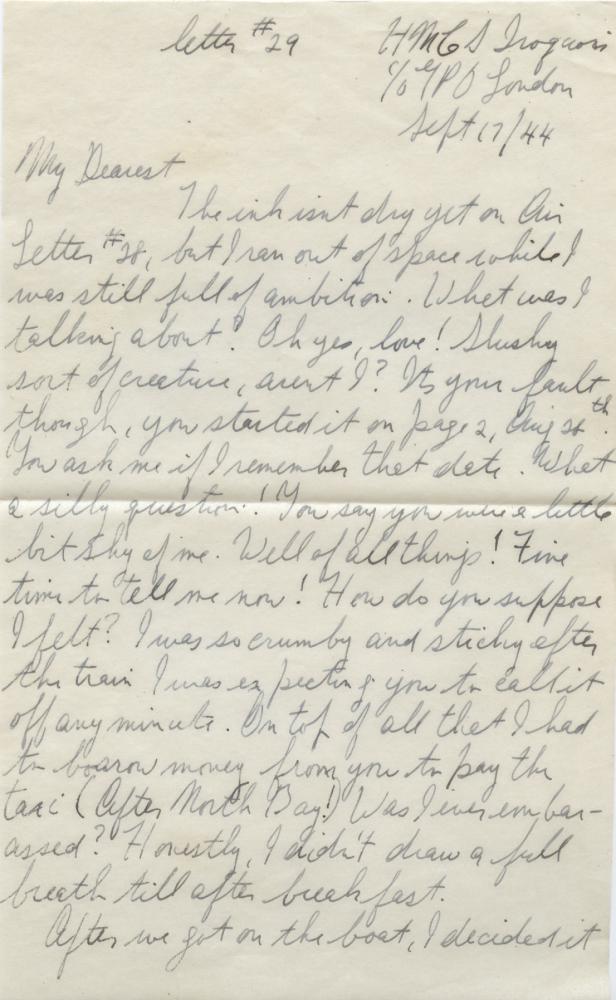 letter #29
HMCS Iroquois
c/o GPO London
Sept 17/44
My Dearest
The ink isnt dry yet on Air
Letter #28, but I ran out of space while I
was still full of ambition. What was I
talking about? Oh yes, love! Slushy
sort of creature, arent I? Its your fault
though, you started it on page 2, Aug 28th.
You ask me if I remember that date. What
a silly question! You say you were a little
bit shy of me. Well of all things! Fine
time to tell me now! How do you suppose
I felt? I was so crumby and sticky after
the train I was expecting you to call it
off any minute. On top of all that I had
to boarow money from you to pay the
taxi (After North Bay!) Was I ever embar-
assed? Honestly, I didn't draw a full
breath till after breakfast.
After we got on the boat, I decided it